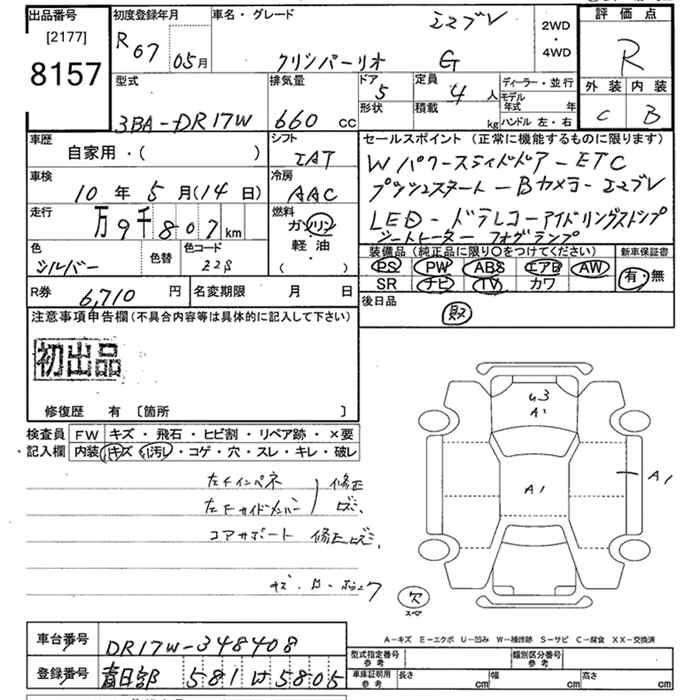 出品番号
[2177]
8157
初度登録年月
R 07 05月
車名・グレード
エブリ
クリッパーリオ G
2WD
・
4WD
評価点
R
外装 内装
C B
型式
3BA-DR17W
排気量
660 cc
ドア
5
形状
定員
4 人
積載
kg
ディーラー・並行
モデル年式 年
ハンドル 左・右
車歴
自家用・( )
シフト
IAT
車検
10 年 5 月(14 日)
冷房
AAC
走行
万 9千 807 km
燃料
ガソリン
軽油
( )
色
シルバー
色替
色コード
Z2S
R券 6,710 円
名変期限 月 日
セールスポイント (正常に機能するものに限ります)
Wパワースライドドア-ETC
プッシュスタート-Bカメラ-エマブレ
LED-ドラレコ-アイドリングストップ
シートヒーター フォグランプ
装備品(純正品に限り○をつけてください)
新車保証書
PS PW ABS エアB AW
SR ナビ TV カワ
有・無
後日品
取
注意事項申告欄(不具合内容等は具体的に記入して下さい)
初出品
修復歴 有 〔箇所 〕
検査員
記入欄
FW キズ・飛石・ヒビ割・リペア跡・×要
内装 キズ・汚レ・コゲ・穴・スレ・キレ・破レ
左Fインパネ 修正
左Fサイドメンバー ズミ
コアサポート 修正ズミ
キズ・
U3
A1
A1
A1
欠
スペア
A-キズ E-エクボ U-凹み W-補修跡 S-サビ C-腐食 XX-交換済
車台番号
DR17W-348408
登録番号
春日部 581 け 5805
型式指定番号
参考
類別区分番号
参考
車庫証明用
参考
長さ cm
幅 cm
高さ cm